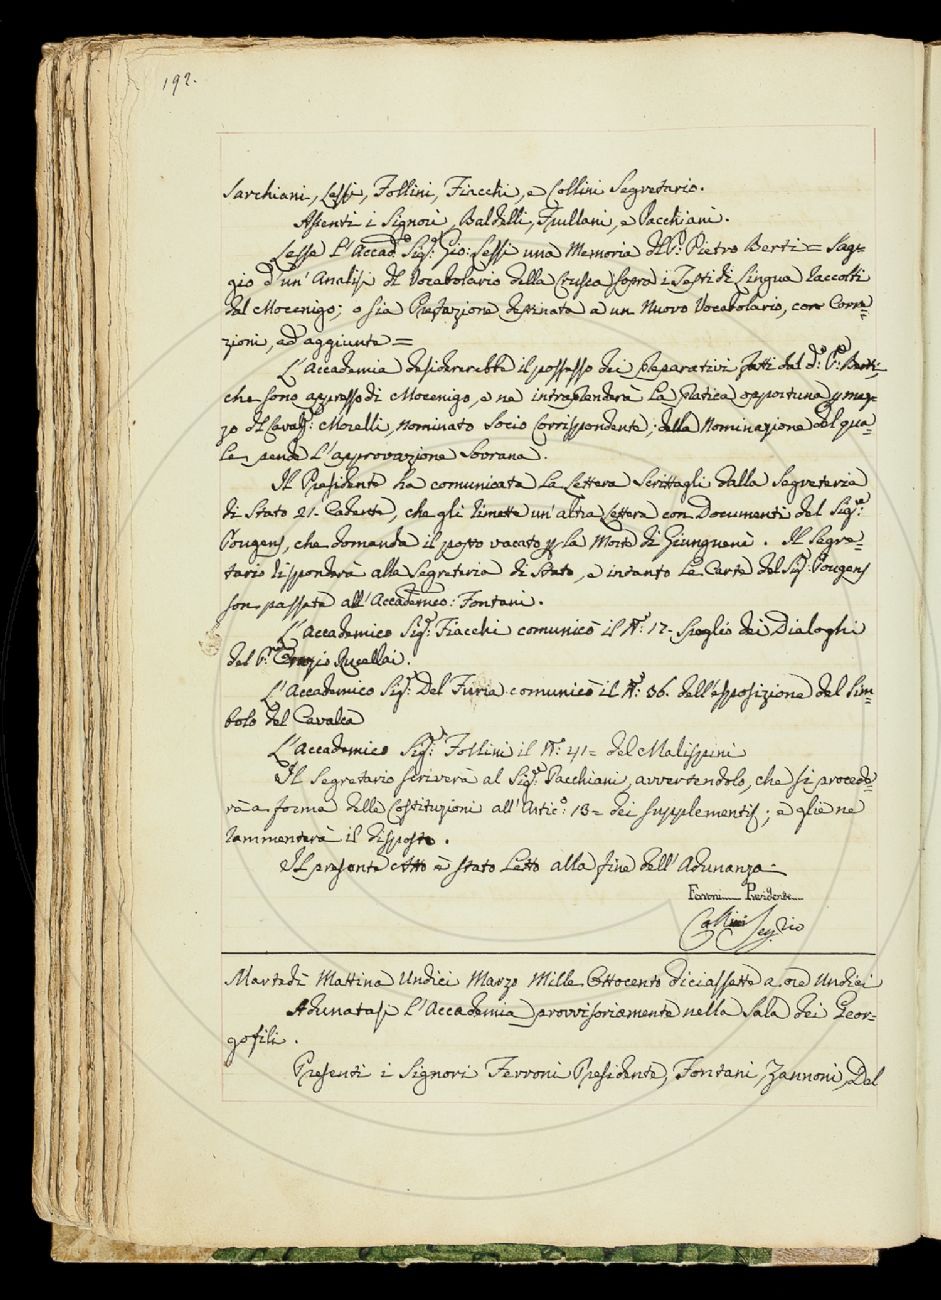 192.
Sarchiani, Lessi, Follini, Fiacchi, e Collini Segretario.
Assenti i Signori, Baldelli, Frullani, e Pacchiani.
Lesse l'Accad.o Sig.r Gio: Lessi una Memoria del P. Pietro Berti = Sag=
gio d'un'Analisi del Vocabolario della Crusca sopra i Testi di Lingua raccolti
dal Mocenigo; o sia Prefazione destinata a un Nuovo Vocabolario, con Corre=
zioni, ed aggiunte =
L'Accademia desidererebbe il possesso dei preparativi fatti dal d.o P. Berti,
che sono appresso di Mocenigo, e ne intraprenderà la pratica opportuna p mez=
zo del Caval.r Morelli, nominato Socio Corrispondente; della Nominazione del qua=
le pende l'approvazione Sovrana.
Il Presidente ha comunicata la Lettera Scrittagli dalla Segreteria
di Stato 21. Cadente, che gli rimette un'altra Lettera con Documenti del Sig.re
Pougens, che domanda il posto vacato p la Morte di Ginguenè. Il Segre=
tario risponderà alla Segreteria di Stato, e intanto le Carte del Sig.r Pougens
son passate all'Accademico: Fontani.
L'Accademico Sig.r Fiacchi comunicò il N.o 17. Spoglio dei Dialoghi
del P. Orazio Rucellai.
L'Accademico Sig.r Del Furia comunicò il N.o 36. dell'esposizione del Sim=
bolo del Cavalca
L'Accademico Sig.r Follini il N.o 41= del Malispini
Il Segretario scriverà al Sig.r Pacchiani, avvertendolo, che si procede=
rà a forma delle Costituzioni all'Artic.o 13= dei Supplementi; e gliene
rammenterà il disposto.
Il presente Atto è stato Letto alla fine dell'Adunanza.
Ferroni Presidente
Collini Seg.rio
Martedì Mattina Undici Marzo Mille Ottocento diciassette a ore Undici
Adunatasi l'Accademia provvisoriamente nella Sala dei Geor=
gofili.
Presenti i Signori Ferroni Presidente, Fontani, Zannoni, Del